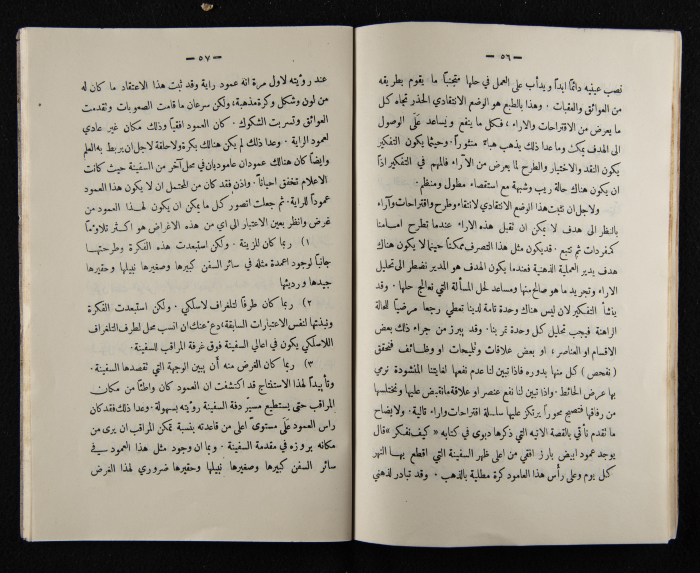 — ٥٦ —
نصب عينيه دائماً ابداً ويدأب على العمل في حلها متجنباً ما يقوم بطريقه
من العوائق والعقبات . وهذا بالطبع هو الوضع الانتقادي الحذر تجاه كل
ما يعرض من الاقتراحات والاراء ، فكل ما ينفع ويساعد عَلَى الوصول
الى الهدف يمكث وما عدا ذلك يذهب هباءً منثوراً . وحيثما يكون التفكير
يكون النقد والاختبار والطرح لما يعرض من الآراء فالمهم في التفكير اذاً
ان يكون هناك حالة ريب وشبهة مع استقصاء مطول ومنظم .
ولاجل ان نثبت هذا الوضع الانتقادي لانتقاء وطرح واقتراحات وآراء
بالنظر الى هدف لا يمكن ان نقبل هذه الاراء عندما تطرح امامنا
كمفردات ثم نتبع . قد يكون مثل هذا التصرف ممكناً حينما لا يكون هناك
هدف يدير العملية الذهنية فعندما يكون الهدف هو المدير نضطر الى تحليل
الاراء وتجريد ما هو صالح منها ومساعد لحل المسألة التي تعالج حلها . وقد
ينشأ التفكير لان ليس هناك وحدة تامة لدينا تعطي رجعاً مرضياً للحالة
الراهنة فيجب تحليل كل وحدة تمر بنا . وقد يبرز من جراء ذلك بعض
الاقسام او العناصر ، او بعض علاقات وتلميحات او وظائف فنحقق
( نفحص ) كل منها بدوره فاذا تبين لنا عدم نفعها لغايتنا المنشودة نرمي
بها عرض الحائط . واذا تبين لنا نفع عنصر او علاقة ما نقبض عليها ونختلسها
من رفاقها فتصبح محوراً يرتكز عليها سلسلة اقتراحات وآراء تالية . ولايضاح
ما تقدم نأتي بالقصة الاتيه التي ذكرها ديوى في كتابه « كيف نفكر » قال
يوجد عمود ابيض بارز افقي من اعلى ظهر السفينة التي اقطع بها النهر
كل يوم وعلى رأس هذا العامود كرة مطلية بالذهب . وقد تبادر لذهني
— ٥٧ —
عند رؤيته لاول مرة انه عمود راية وقد ثبت هذا الاعتقاد ما كان له
من لون وشكل وكرة مذهبة ، ولكن سرعان ما قامت الصعوبات وتقدمت
العوائق وتسربت الشكوك . كان العمود افقياً وذلك مكان غير عادي
لعمود الراية . وعدا ذلك لم يكن هنالك بكرة ولا حلقة لاجل ان يربط به العلم
وايضاً كان هنالك عمودان عاموديان في محل آخر من السفينة حيث كانت
الاعلام تخفق احياناً . واذن فقد كان من المحتمل ان لا يكون هذا العمود
عموداً للراية . ثم جعلت اتصور كل ما يمكن ان يكون لهذا العمود من
غرض وانظر بعين الاعتبار الى اي من هذه الاغراض هو اكثر تلاؤماً
١) ربما كان للزينة . ولكن استبعدت هذه الفكرة وطرحتها
جانباً لوجود اعمدة مثله في سائر السفن كبيرها وصغيرها نبيلها وحقيرها
جيدها ورديئها
٢) ربما كان طرفاً لتلغراف لاسلكي . ولكن استبعدت الفكرة
ونبذتها لنفس الاعتبارات السابقة ، دع عنك ان انسب محل لطرف التلغراف
اللاسلكي يكون في اعالي السفينة فوق غرفة المراقب للسفينة .
٣) ربما كان الغرض منه أن يبين الوجهة التي تقصدها السفينة .
وتأييداً لهذا الاستنتاج قد اكتشفت ان العمود كان واطئاً من مكان
المراقب حتى يستطيع مسيّر دفة السفينة رؤيته بسهولة . وعدا ذلك فقد كان
راس العمود عَلَى مستوىً اعلى من قاعدته بنسبة تمكن المراقب ان يرى من
مكانه بروزه في مقدمة السفينة . وبما ان وجود مثل هذا العمود في
سائر السفن كبيرها وصغيرها نبيلها وحقيرها ضروري لهذا الغرض